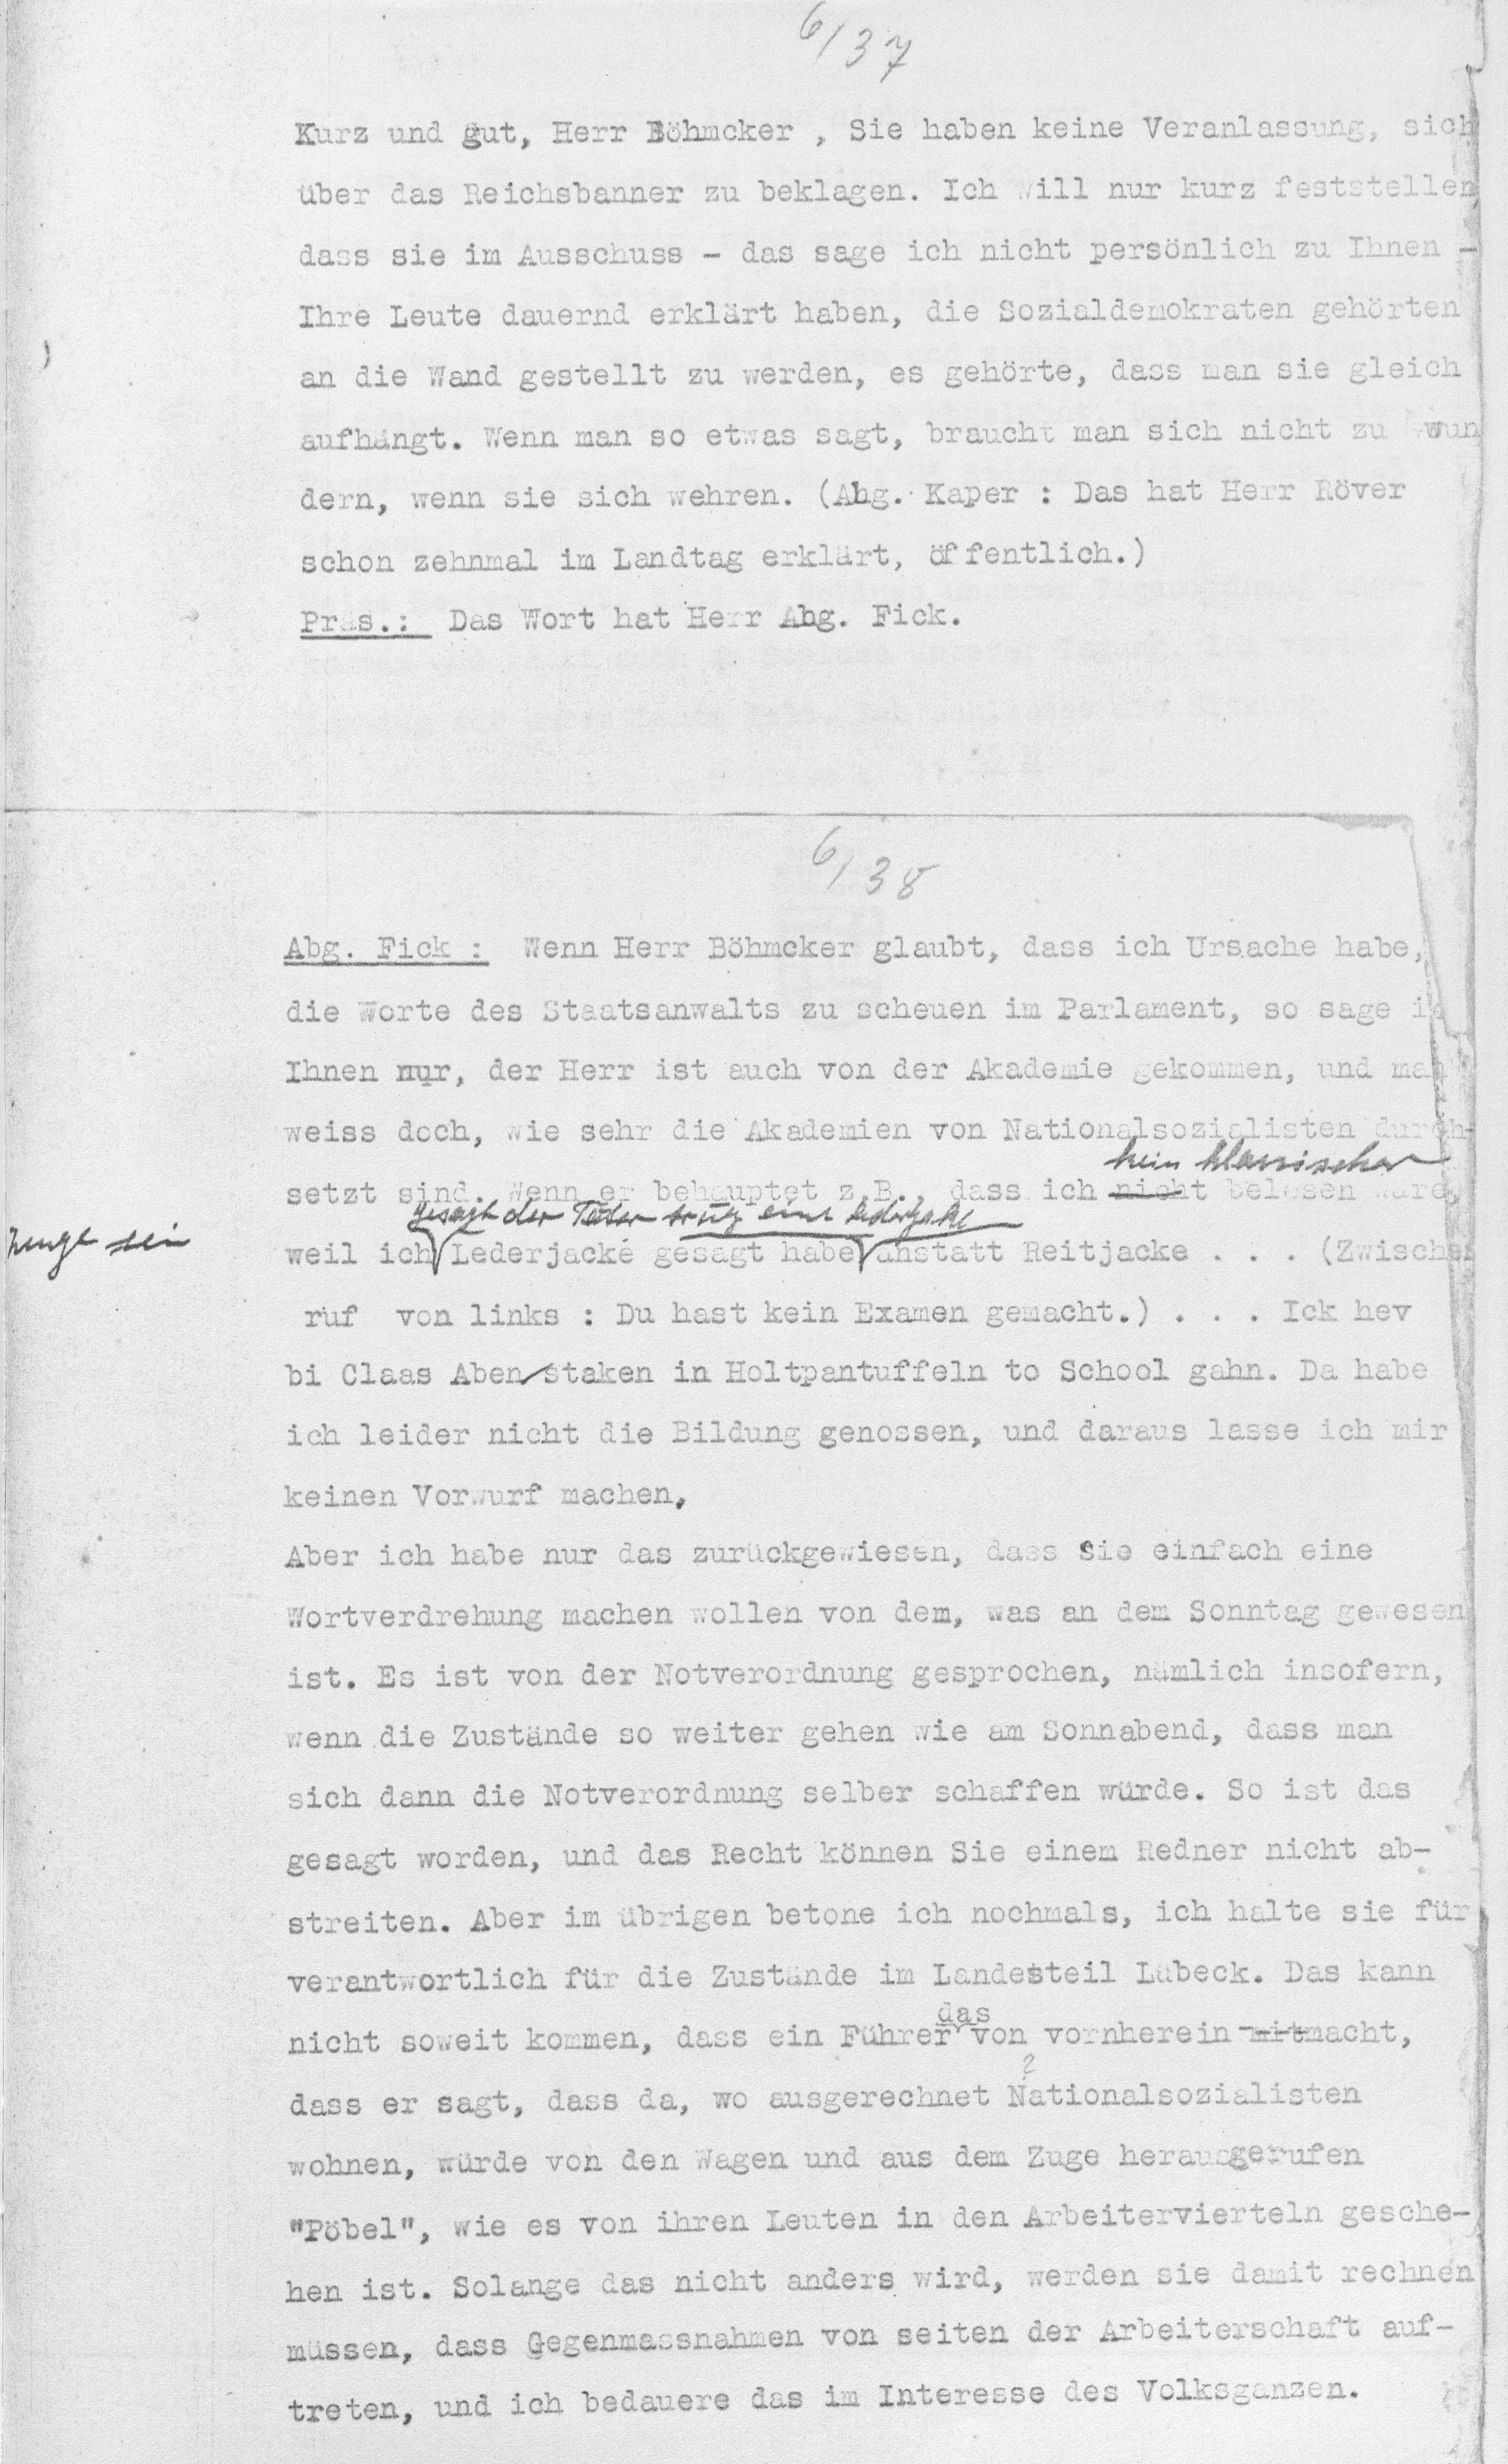 6/37
Kurz und gut, Herr Böhmcker , Sie haben keine Veranlassung, sich
über das Reichsbanner zu beklagen. Ich will nur kurz feststellen
dass sie im Ausschuss - das sage ich nicht persönlich zu Ihnen -
Ihre Leute dauernd erklärt haben, die Sozialdemokraten gehörten
an die Wand gestellt zu werden, es gehörte, dass man sie gleich
aufhängt. Wenn man so etwas sagt, braucht man sich nicht zu wun
dern, wenn sie sich wehren. (Abg. Kaper : Das hat Herr Röver
schon zehnmal im Landtag erklärt, öffentlich.)
Präs.: Das Wort hat Herr Abg. Fick.
6/38
Abg. Fick : Wenn Herr Böhmcker glaubt, dass ich Ursache habe,
die Worte des Staatsanwalts zu scheuen im Parlament, so sage ic
Ihnen nur, der Herr ist auch von der Akademie gekommen, und man
weiss doch, wie sehr die Akademien von Nationalsozialisten durch-
kein klassischer
setzt sind. Wenn er behauptet z.B., dass ich nicht belesen wäre,
gesagt der Täter trug eine Lederjacke
Zeuge sei
weil ich Lederjacke gesagt habe anstatt Reitjacke . . . (Zwischen
ruf von links : Du hast kein Examen gemacht.) . . . Ick hev
bi Claas Aben staken in Holtpantuffeln to School gahn. Da habe
ich leider nicht die Bildung genossen, und daraus lasse ich mir
keinen Vorwurf machen.
Aber ich habe nur das zurückgewiesen, dass Sie einfach eine
Wortverdrehung machen wollen von dem, was an dem Sonntag gewesen
ist. Es ist von der Notverordnung gesprochen, nämlich insofern,
wenn die Zustände so weiter gehen wie am Sonnabend, dass man
sich dann die Notverordnung selber schaffen würde. So ist das
gesagt worden, und das Recht können Sie einem Redner nicht ab-
streiten. Aber im übrigen betone ich nochmals, ich halte sie für
verantwortlich für die Zustände im Landesteil Lübeck. Das kann
das
nicht soweit kommen, dass ein Führer von vornherein mitmacht,
?
dass er sagt, dass da, wo ausgerechnet Nationalsozialisten
wohnen, würde von den Wagen und aus dem Zuge herausgerufen
"Pöbel", wie es von ihren Leuten in den Arbeitervierteln gesche-
hen ist. Solange das nicht anders wird, werden sie damit rechnen
müssen, dass Gegenmassnahmen von seiten der Arbeiterschaft auf-
treten, und ich bedauere das im Interesse des Volksganzen.